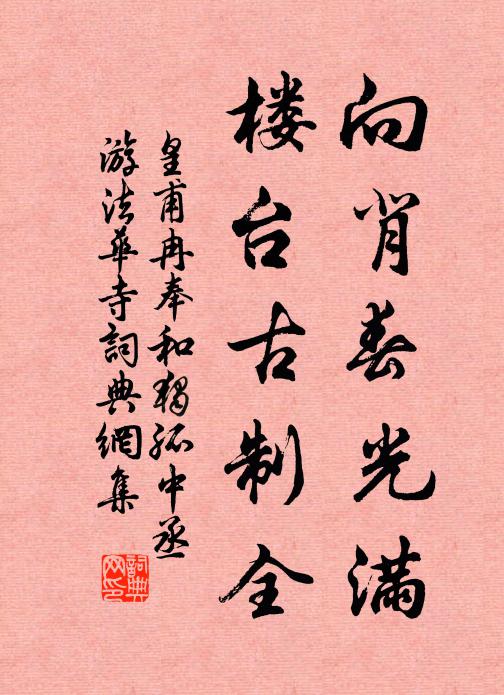 向背春光满
楼台古制全
皇甫冉奉和獨孤中丞
游法華寺詞典網集
詞典
网印